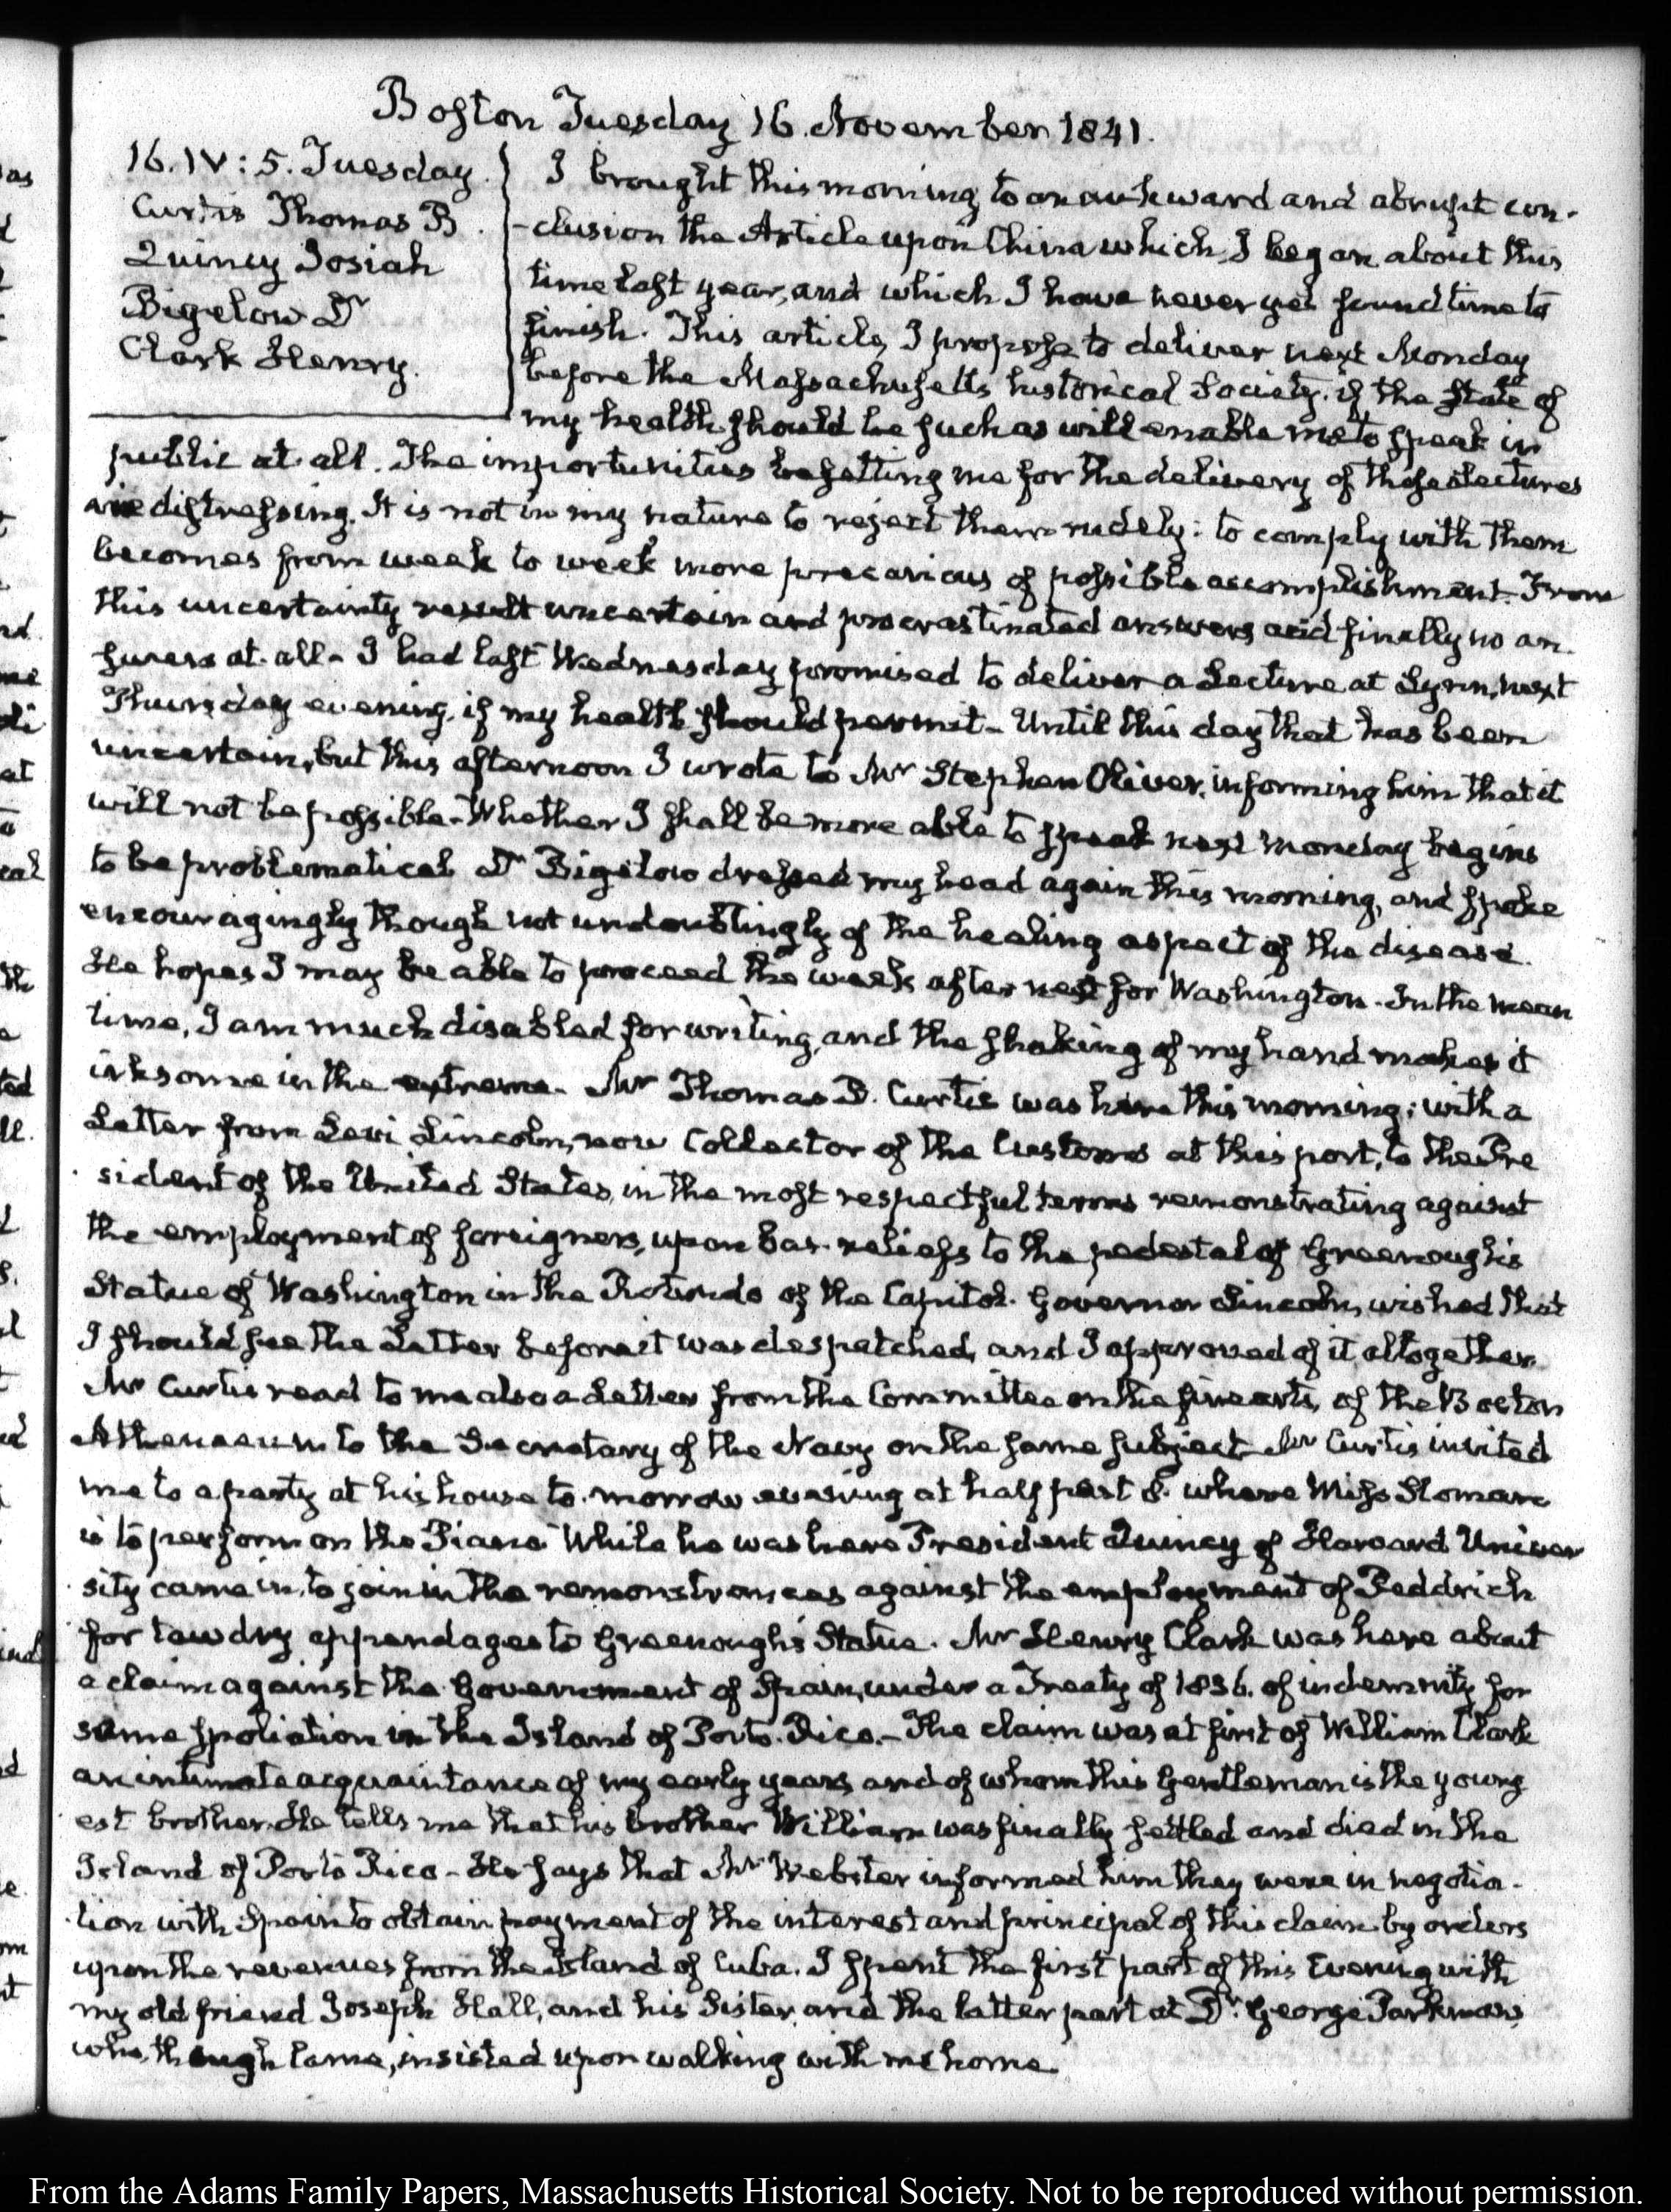 Boston Tuesday 16. November 1841.
16. IV: 5. Tuesday.
Curtis Thomas B.
Quincy Josiah
Bigelow Dr
Clark Henry.
I brought this morning to an aukward and abrupt con-
-clusion the Article upon China which I began about this
time last year, and which I have never yet found time to
finish. This article, I propose to deliver next Monday
before the Massachusetts historical Society, if the State of
my health should be such as will enable me to speak in
public at all. The importunities besetting me for the delivery of those lectures
are distressing. It is not in my nature to reject them rudely: to comply with them
becomes from week to week more precarious of possible accomplishment. From
this uncertainty result uncertain and procrastinated answers and finally no an-
swers at all- I had last Wednesday promised to deliver a Lecture at Lynn, next
Thursday evening, if my health should permit- Until this day that has been
uncertain, but this afternoon I wrote to Mr Stephen Oliver, informing him that it
will not be possible- Whether I shall be more able to speak next Monday begins
to be problematical Dr Bigelow dressed my head again this morning, and spoke
encouragingly though not undoubtingly of the healing aspect of the disease.
He hopes I may be able to proceed the week after next for Washington. In the mean
time, I am much disabled for writing, and the shaking of my hand makes it
irksome in the extreme- Mr Thomas B. Curtis was here this morning; with a
Letter from Levi Lincoln, now Collector of the Customs at this port, to the Pre
sident of the United States, in the most respectful terms remonstrating against
the employment of foreigners, upon bas-reliefs to the pedestal of Greenough's
Statue of Washington in the Rotundo of the Capitol. Governor Lincoln, wished that
I should see the Letter before it was despatched, and I approved of it altogether.
Mr Curtis read to me also a Letter from the Committee on the fine arts, of the Boston
Athenaeum to the Secretary of the Navy on the same subject Mr Curtis invited
me to a party at his house to-morrow evening at half past 8. where Miss Sloman
is to perform on the Piano. While he was here President Quincy of Harvard Univer
sity came in, to join in the remonstrances against the employment of Peddrich
for tawdry appendages to Greenough's Statue. Mr Henry Clark was here about
a claim against the Government of Spain, under a Treaty of 1836. of indemnity for
some spoliation in the Island of Porto-Rico.- The claim was at first of William Clark
an intimate acquaintance of my early years and of whom this Gentleman is the young
est brother. He tells me that his brother William was finally settled and died in the
Island of Porto Rico- He says that Mr Webster informed him they were in negotia-
tion with Spain to obtain payment of the interest and principal of this claim by orders
upon the revenues from the Island of Cuba. I spent the first part of this Evening with
my old friend Joseph Hall, and his Sister, and the latter part at Dr. George Parkman's,
who, though lame, insisted upon walking with me home
From the Adams Family Papers, Massachusetts Historical Society. Not to be reproduced without permission.